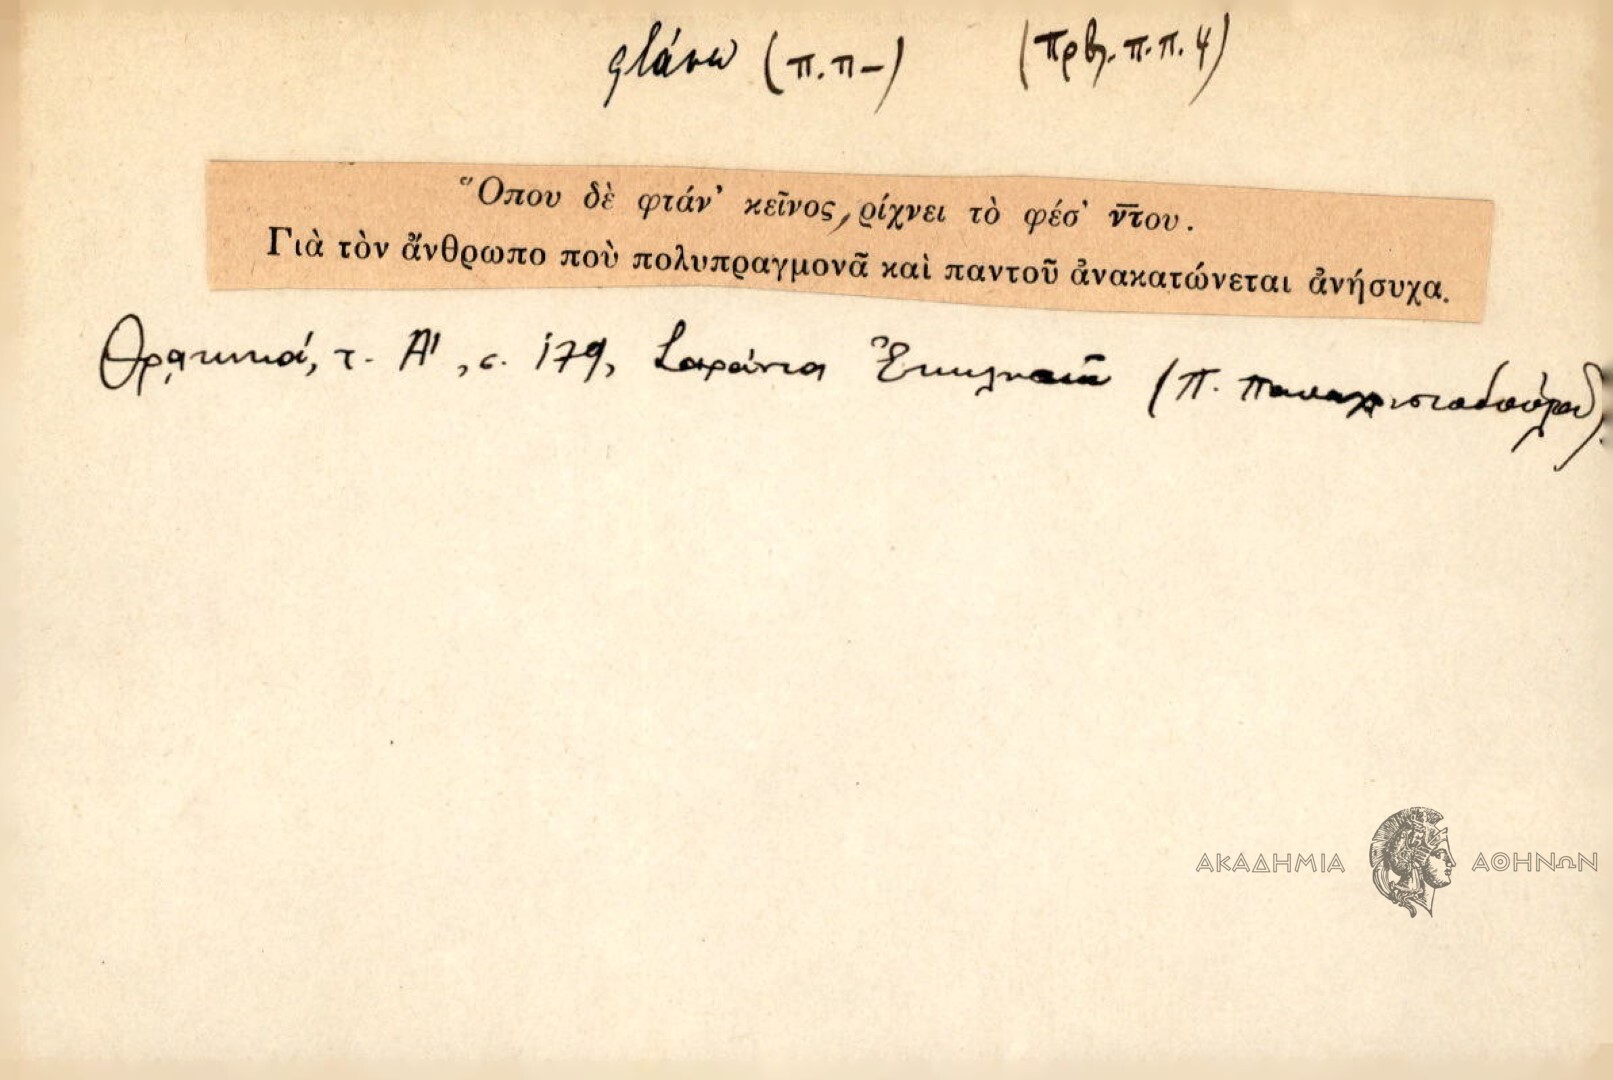 φτάνω (π.π-) (πρβλ. π.π. 4)
Ὅπου δὲ φτάν' κεῖνος, ρίχνει τὸ φέσ' ν̅τ̅ου.
Γιὰ τὸν ἄνθρωπο ποὺ πολυπραγμονᾶ καὶ παντοῦ ἀνακατώνεται ἀνήσυχα.
Θρᾳκικά, τ. Α', σ. 179, Σαράντα Ἐκκλησιαῖ (Π. Παπαχριστοδούλου).
ΑΚΑΔΗΜΙΑ ΑΘΗΝΩΝ